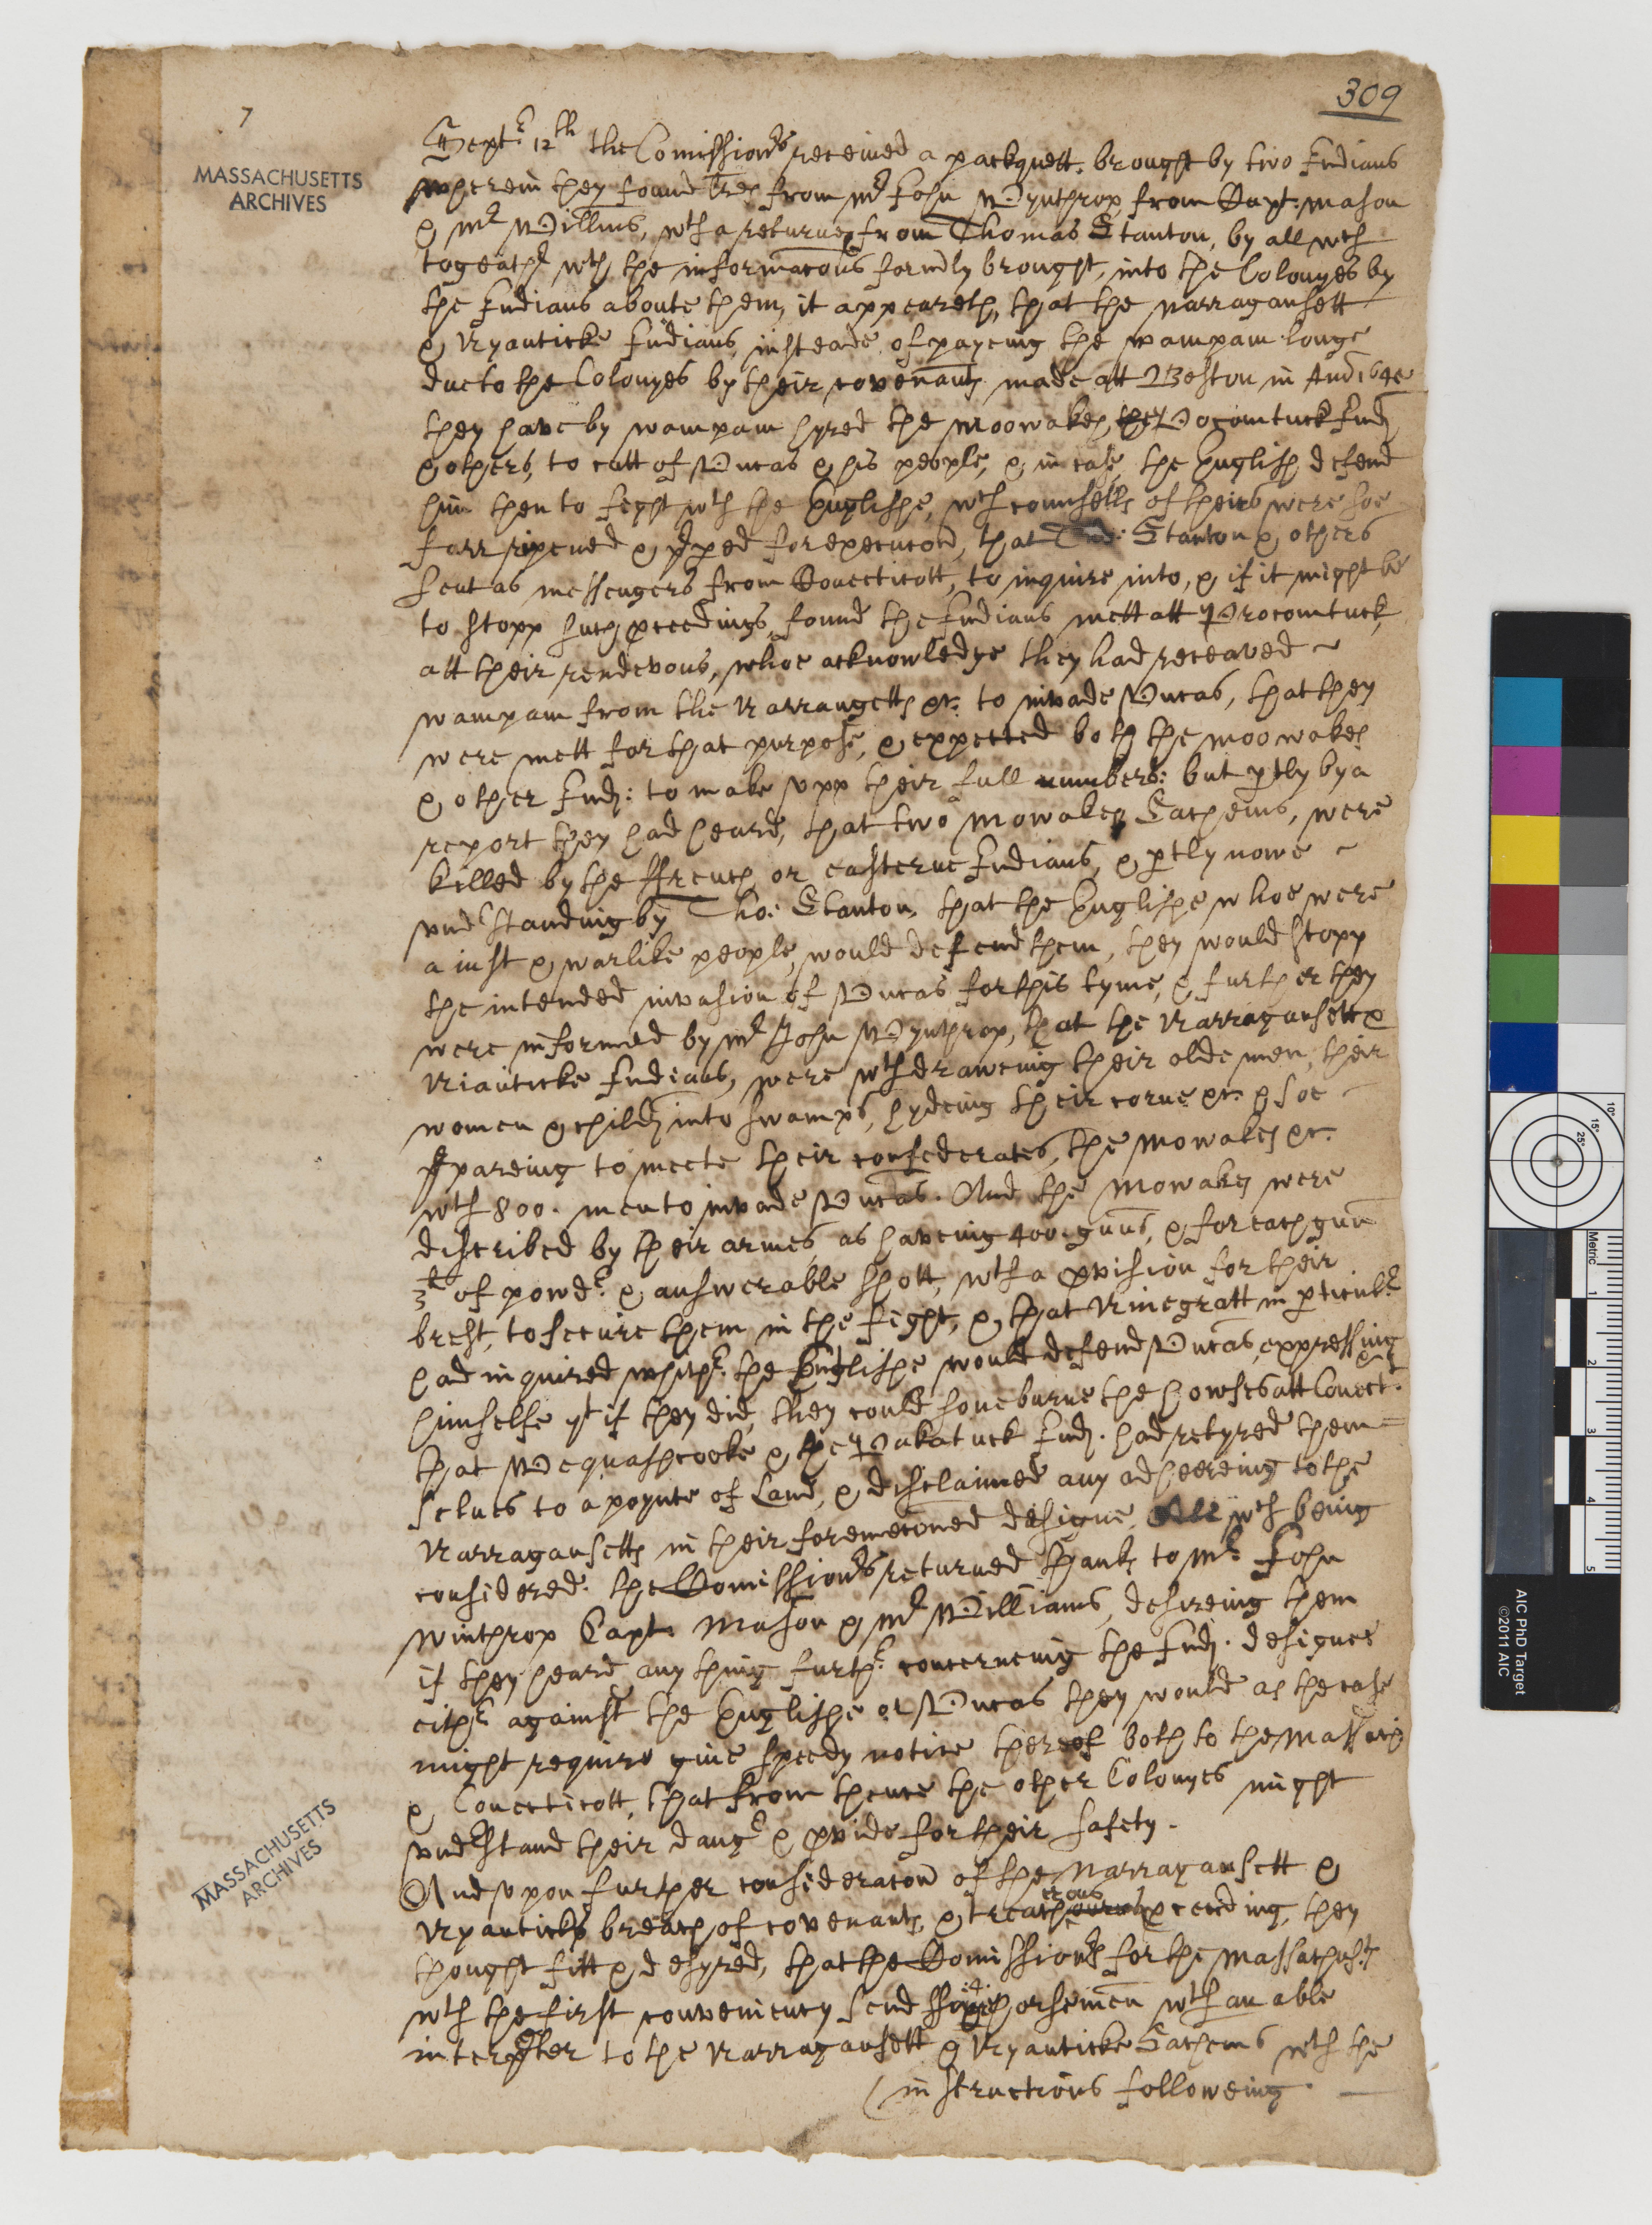 309
7
MASSACHUSETTS
ARCHIVES
Sept:r 12th the Comissionrs receiued a packquett, brought by two Indians
wherein they found lres from mr John Wynthrop from Capt: mason
& mr Willms, wth a returne from Thomas Stanton, by all wch
togeathr wth the informacons formrly brought, into the Colonyes by
the Indians aboute them, it appeareth, that the narragansett
& Nyanticke Indians, insteade of payeing the wampam longe
due to the Colonyes by their covenants made att Boston in Anno
they have by wampam hyred the moowakes, the Pocomtuck Inds
& others, to cutt of Vncas & his people, & in case the English defend
him then to fight wth the Englishe, wch counsells of theirs were soe
farr ripened & pped for execucon, that Tho: Stanton & others
sent as messengers from Conecticott, to inquire into, & if it might be
to stopp such pceedings, found the Indians mett att Pocomtuck,
att their rendevous, whoe acknowledge they had receaved ~
wampam from the Narrangetts &c: to invade Vncas, that they
were mett for that purpose, & expected both the moowakes
& other Inds: to make vpp their full numbers: but ptly by a
report they had heard, that two mowakes Sachems, were
killed by the ffrench or easterne Indians, & ptly nowe ~
vndrstanding by Tho: Stanton, that the Englishe whoe were
a iust & warlike people, would defend them, they would stopp
the intended invasion of Vncas for this tyme, & further they
were informed by mr John Wynthrop, that the Narragansett &
Nianticke Indians, were wthdraweing their olde men, their
women & childs into swamps, hydeing their corne &c: & soe
ppareing to meete their confederates, the mowakes &c:
wth 800. men to invade Vncas. And the mowakes were
discribed by their armes, as haveing 400. guns, & for each gun
3l of powdr: & answerable shott, wth a pvision for their
brest, to secure them in the fight, & that Ninegratt in pticulr
had inquired whithr: the Englishe would defend Vncas, expressing
himselfe yt if they did, they could soone burne the howses att Conect:
that Wequashcooke & the Pakatuck Inds. had retyred them=
selues to a poynte of Land, & disclaimed any adheereing to the
Narragansetts in their foremenconed designe, All wch being
considered: the Comissionrs returned thanks to mr: John
Winthrop Capt: Mason & mr Williams, desireing them
if they heard any thing furthr: concerneing the Inds. designes
eithr against the Englishe or Vncas they would as the case
might require giue speedy notice thereof both to the Massachs
& Conecticott, that from thence the other Colonyes might
vndrstand their dangr & pvide for their safety.
And vpon further consideracon of the narragansett &
Nyanticks breach of covenants, & treacherous pceeding, they
thought fitt & desyred, that the Comissionrs for the Massachusts
wth the first conveniency send :4: horsemen wth an able
interpter to the Narragansett & Nyanticke Sachems wth the
(instructions followeing. —
MASSACHUSETTS
ARCHIVES
10°
15°
25°
Metric
1
2
3
4
5
AIC PhD Target
©2011 AIC